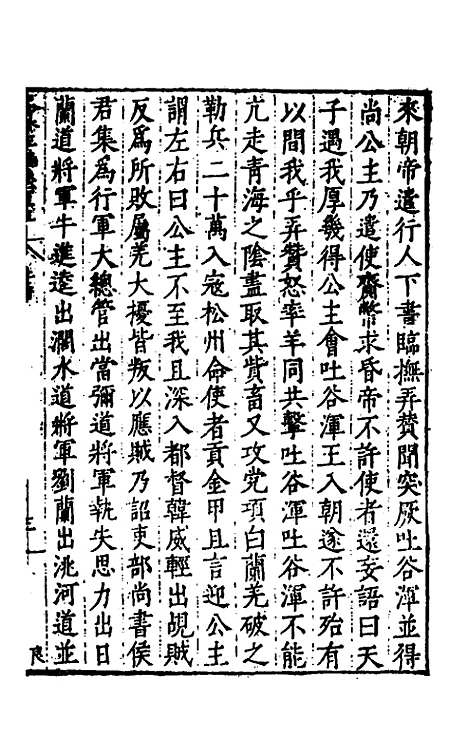 來朝帝遣行人下書臨撫弄贊聞突厥吐谷渾並得
尚公主乃遣使齎幣求昏帝不許使者還妄語曰天
子遇我厚幾得公主會吐谷渾王入朝遂不許殆有
以間我乎弄贊怒率羊同共擊吐谷渾吐谷渾不能
亢走青海之陰盡取其貲畜又攻党項白蘭羌破之
勒兵二十萬入寇松州命使者貢金甲且言迎公主
謂左右曰公主不至我且深入都督韓威輕出覘賊
反爲所敗屬羌大擾皆叛以應賊乃詔吏部尚書侯
君集爲行軍大總管出當彌道將軍執失思力出白
蘭道將軍牛進達出濶水道將軍劉蘭出洮河道並